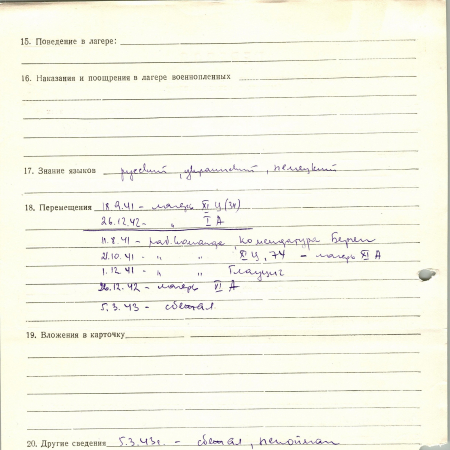 15. Поведение в лагере:
16. Наказания и поощрения в лагере военнопленных
17. Знание языков русский, украинский, немецкий
18. Перемещения 18.9.41 - лагерь XI Ц (311)
26.12.42 - " I А
11.8.41 - раб. команда, комендатура Берген
21.10.41 - " " XI Ц, 74 - лагерь XI А
1.12.41 - " " Глауциг
26.12.42 - лагерь VI А
5.3.43 - сбежал
19. Вложения в карточку
20. Другие сведения 5.3.43г. - сбежал, непойман